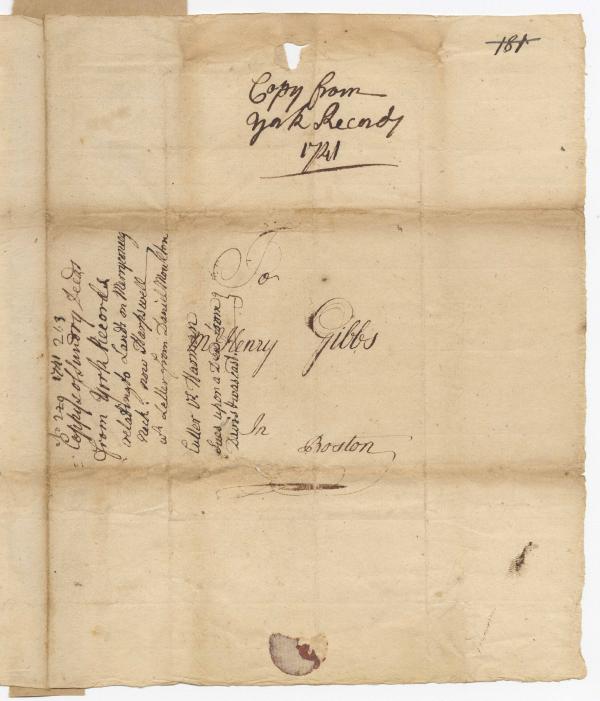 181
Copy from
York Records
1741
To
Mr Henry Gibbs
In
Boston
No 229 1741 263
Coppys of Sundry Deeds
from York Records
relating to Lands on
Neck now Harpswell
wth Letter from Daniel Moulton
Cutter Vs Harman
Sues upon a Deed from